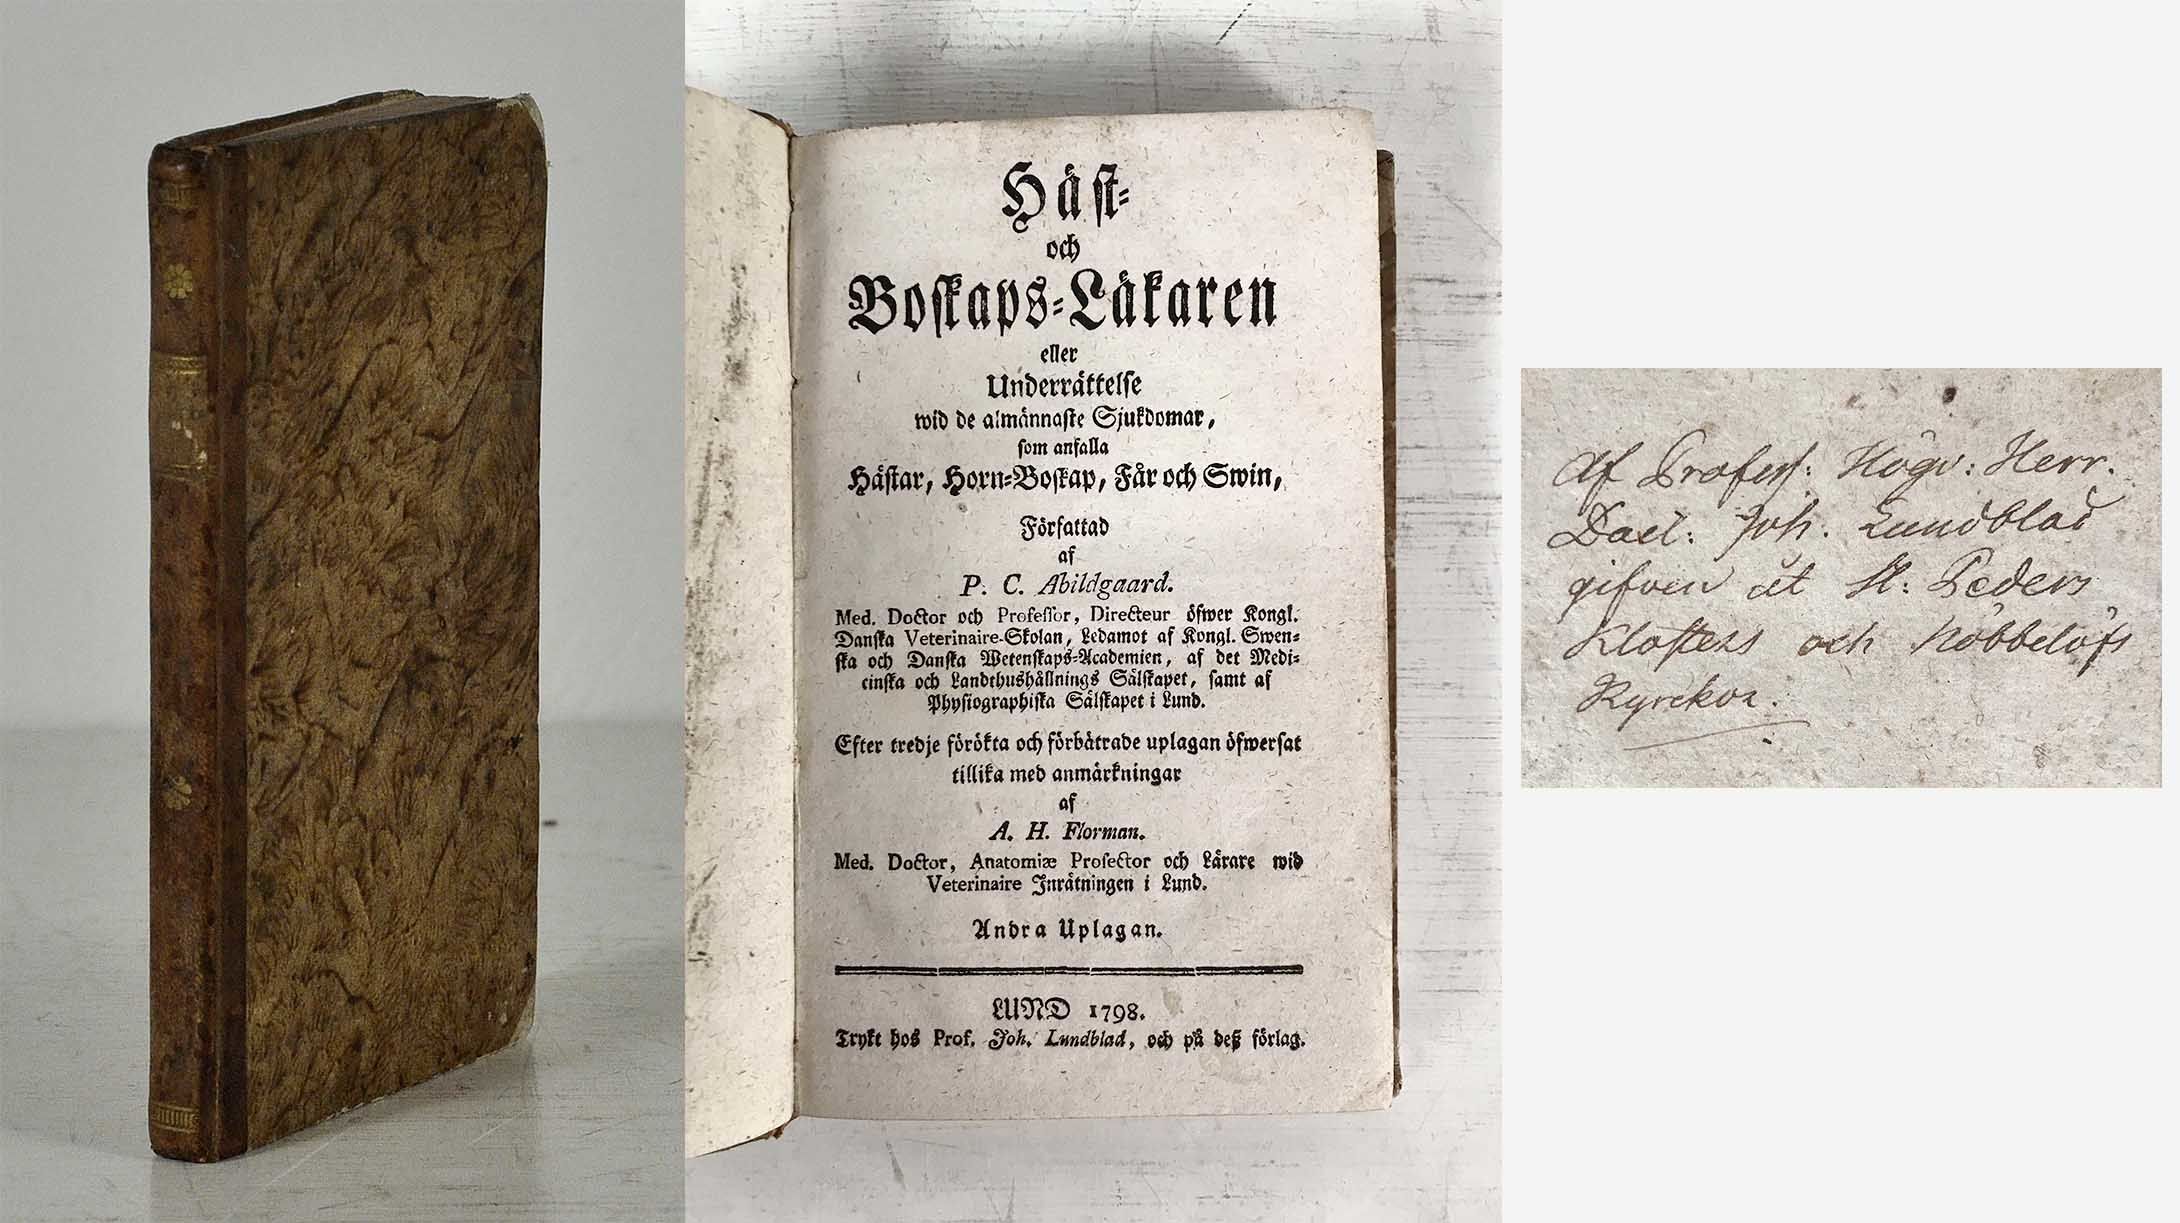 Häst-
och
Boskaps-Läkaren
eller
Underrättelse
wid de almännaste Sjukdomar,
som anfalla
Hästar, Horn-Boskap, Får och Swin,
Författad
af
P. C. Abildgaard.
Med. Doctor och Professor, Directeur öfwer Kongl.
Danska Veterinaire-Skolan, Ledamot af Kongl. Swen-
ska och Danska Wetenskaps-Academien, af det Medi-
cinska och Landthushållnings Sälskapet, samt af
Physiographiska Sälskapet i Lund.
Efter tredje förökta och förbätrade uplagan öfwersat
tillika med anmärkningar
af
A. H. Florman.
Med. Doctor, Anatomiæ Prosector och Lärare wid
Veterinaire Inrätningen i Lund.
Andra Uplagan.
LUND 1798.
Trykt hos Prof. Joh. Lundblad, och på deß förlag.
Af Profess: Högv: Herr.
Doct: Joh. Lundblad
gifven åt St: Peders
Klosters och Nöbbelöfs
Kyrckor.